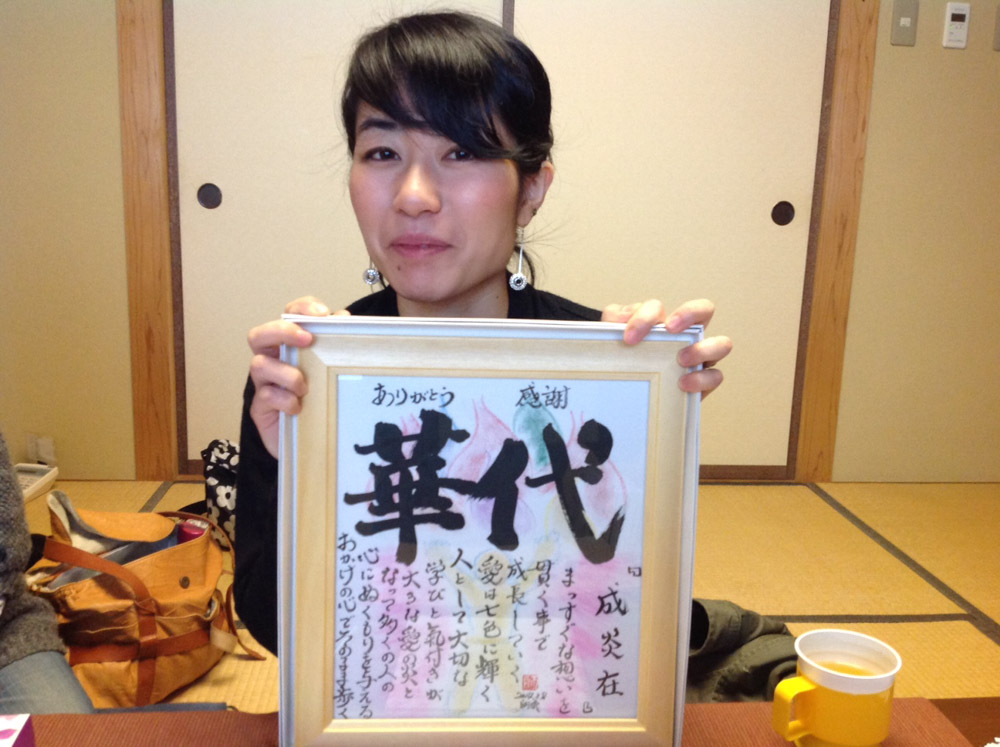 ありがとう　感謝
華代
『成炎在』
まっすぐな想いを
貫く事で
成長していく
愛は七色に輝く
人として大切な
学びと気付きが
大きな愛の炎と
なって多くの人の
心にぬくもりを与える
おかげの心でそのまま歩く